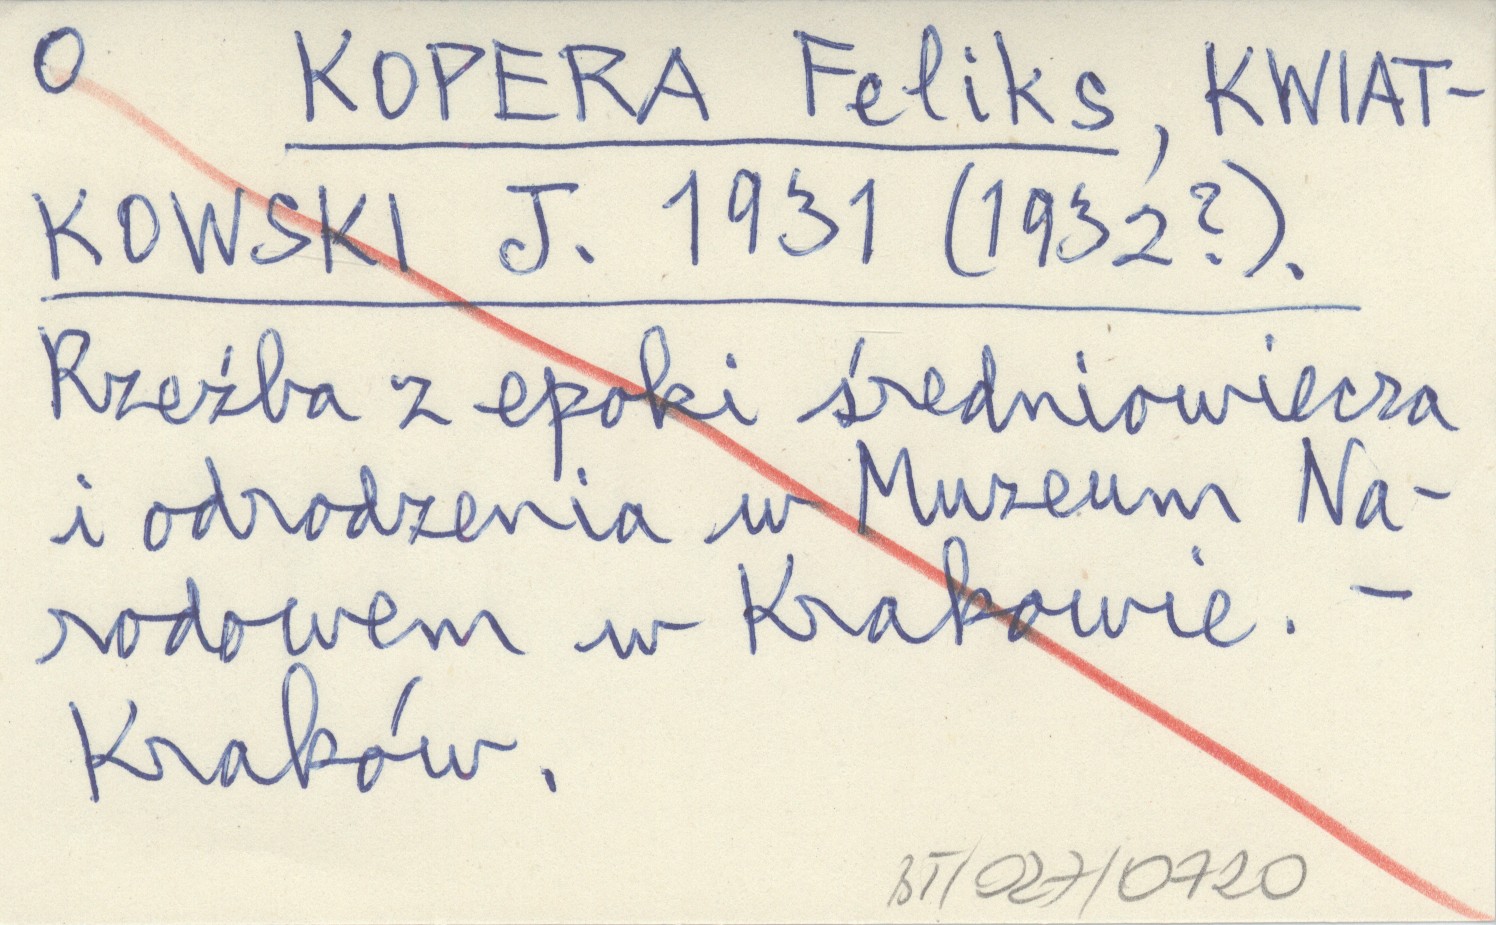 O KOPERA Feliks, KWIAT-
KOWSKI J. 1931 (1932?).
Rzeźba z epoki średniowiecza
i odrodzenia w Muzeum Na-
rodowem w Krakowie. -
Kraków.
BT/027/0720